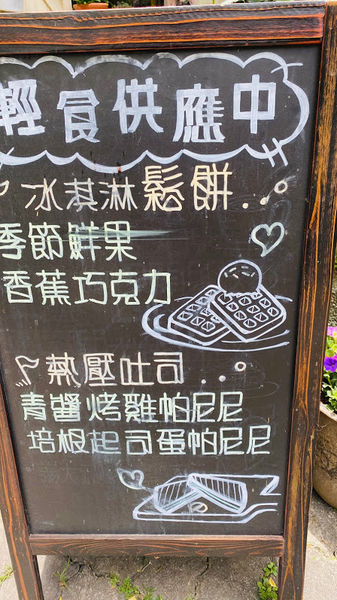 輕食供應中
冰淇淋鬆餅...
季節鮮果
香蕉巧克力
熱壓吐司...
青醬烤雞帕尼尼
培根起司蛋帕尼尼